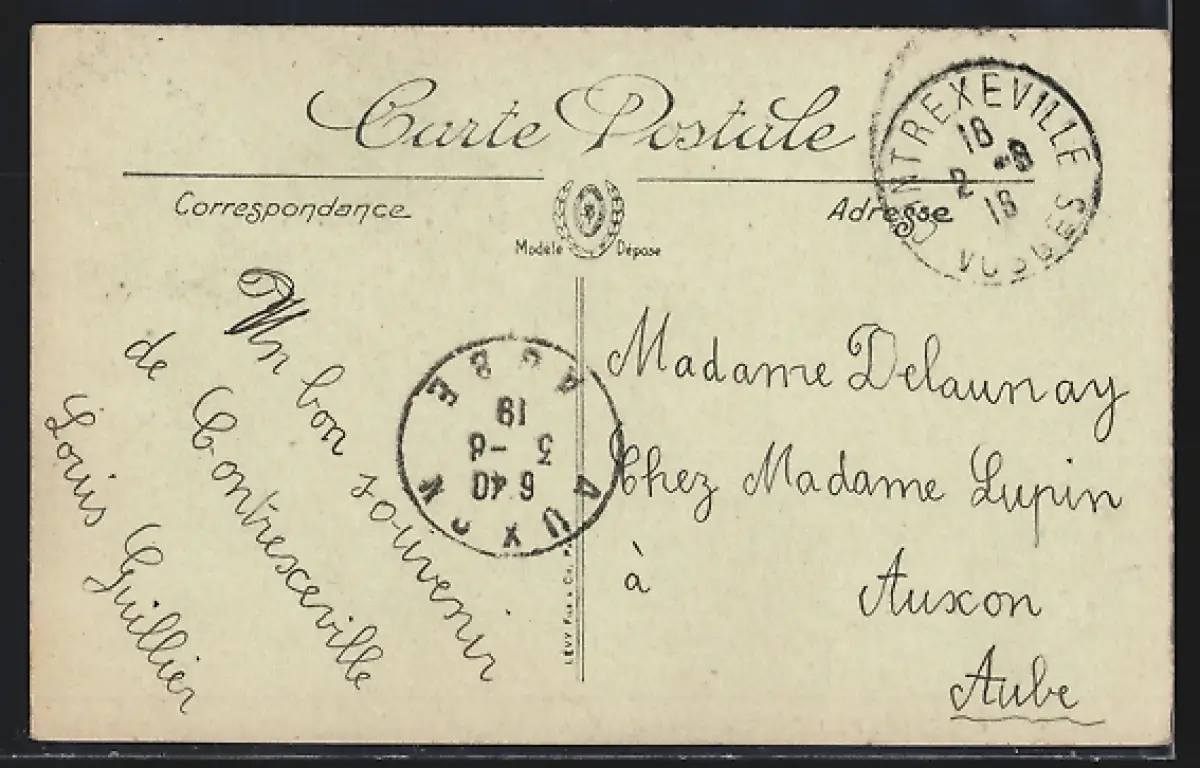 Carte Postale
Correspondance
Adresse
Modèle Déposé
CONTREXEVILLE
18
2 -8
18
VOSGES
Un bon souvenir
de Contrexeville
Louis Guillier
AUXON
6 40
3 -8
19
AUBE
Madame Delaunay
Chez Madame Lupin
à Auxon
Aube
LÉVY Fils & Co.